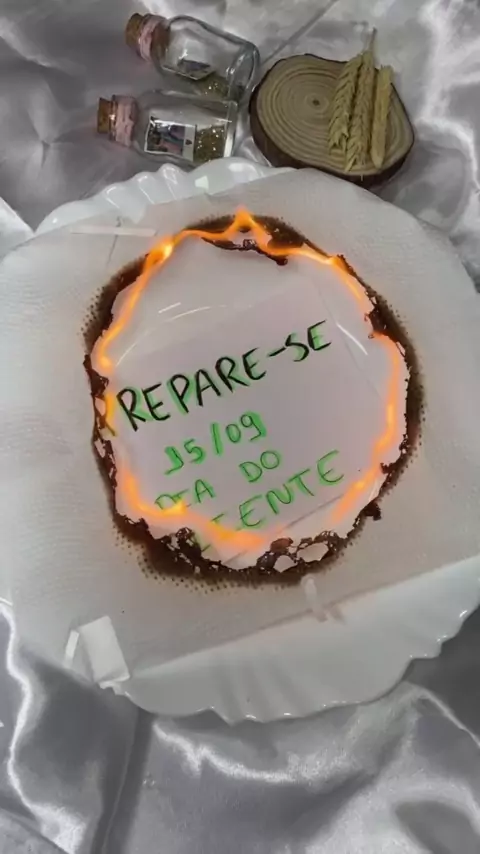 PREPARE-SE
15/09
DIA DO
CLIENTE